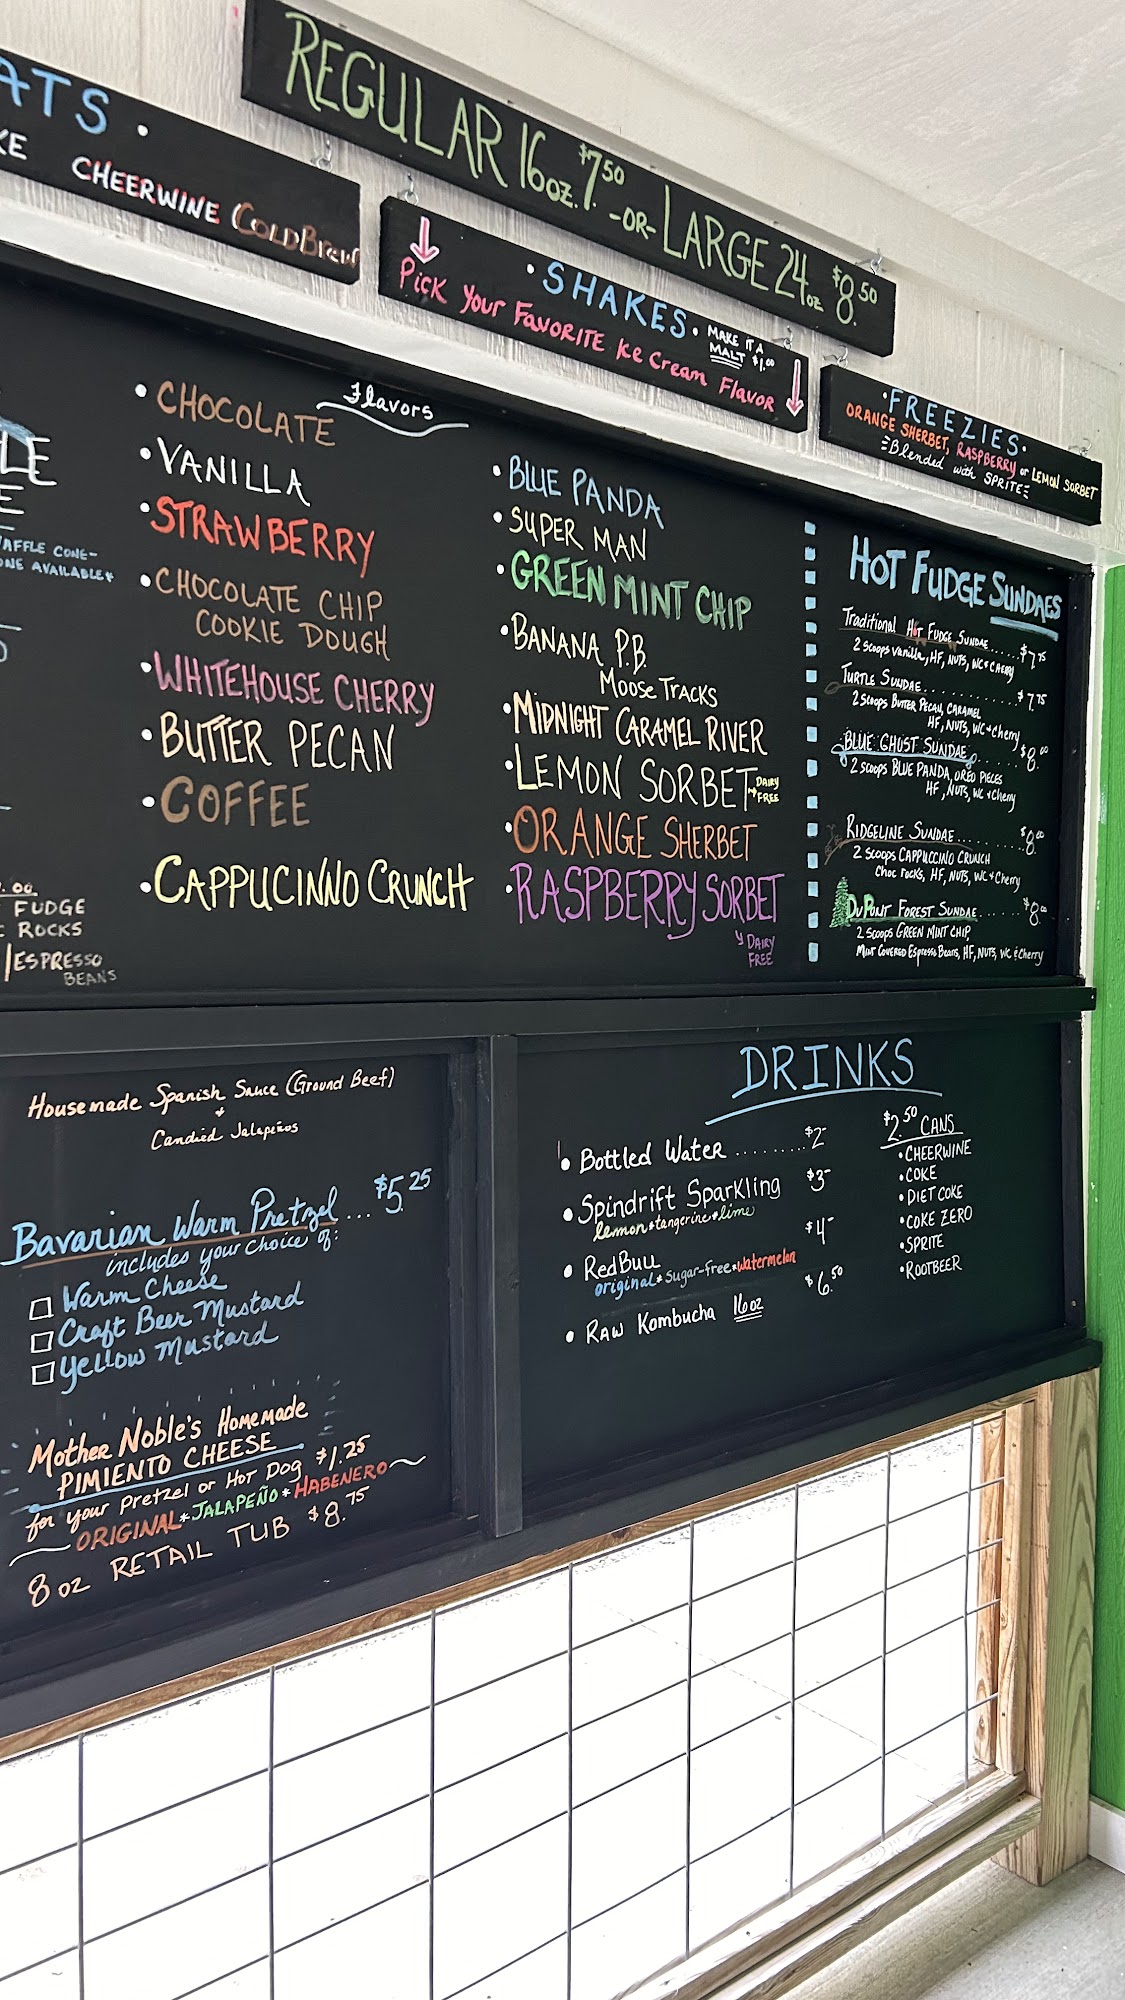 REGULAR 16oz. $7.50 -OR- LARGE 24oz $8.50
ATS •
KE CHEERWINE COLD Brew
• SHAKES •
MAKE IT A
MALT $1.00
Pick Your FAVORITE Ice Cream Flavor
• FREEZIES •
ORANGE SHERBET, RASPBERRY or LEMON SORBET
Blended with SPRITE
LE
E
WAFFLE CONE-
ONE AVAILABLE*
.00
FUDGE
ROCKS
/ESPRESSO
BEANS
Flavors
• CHOCOLATE
• VANILLA
• STRAWBERRY
• CHOCOLATE CHIP
COOKIE DOUGH
• WHITEHOUSE CHERRY
• BUTTER PECAN
• COFFEE
• CAPPUCINNO CRUNCH
• BLUE PANDA
• SUPER MAN
• GREEN MINT CHIP
• BANANA P.B.
Moose TRACKS
• MIDNIGHT CARAMEL RIVER
• LEMON SORBET → DAIRY
FREE
• ORANGE SHERBET
• RASPBERRY SORBET
DAIRY
FREE
HOT FUDGE SUNDAES
Traditional Hot Fudge Sundae......$7.75
2 scoops vanilla, HF, NUTS, WC & CHERRY
TURTLE SUNDAE............$7.75
2 SCOOPS BUTTER PECAN, CARAMEL
HF, NUTS, WC & Cherry
BLUE GHOST SUNDAE........$8.00
2 SCOOPS BLUE PANDA, OREO PIECES
HF, NUTS, WC & Cherry
RIDGELINE SUNDAE.........$8.00
2 SCOOPS CAPPUCCINO CRUNCH
CHOC ROCKS, HF, NUTS, WC & Cherry
DUPONT FOREST SUNDAE.......$8.00
2 SCOOPS GREEN MINT CHIP,
MINT COVERED ESPRESSO BEANS, HF, NUTS, WC & Cherry
Housemade Spanish Sauce (Ground Beef)
+
Candied Jalapeños
Bavarian Warm Pretzel ... $5.25
includes your choice of:
☐ Warm Cheese
☐ Craft Beer Mustard
☐ Yellow Mustard
Mother Noble's Homemade
PIMIENTO CHEESE
for your Pretzel or HOT DOG $1.25
ORIGINAL * JALAPEÑO * HABENERO
8 oz RETAIL TUB $8.75
DRINKS
• Bottled Water .......... $2-
• Spindrift Sparkling $3-
lemon * tangerine * lime
• RedBull $4-
original * sugar-free * watermelon
• RAW Kombucha 16oz $6.50
$2.50 CANS
• CHEERWINE
• COKE
• DIET COKE
• COKE ZERO
• SPRITE
• ROOTBEER